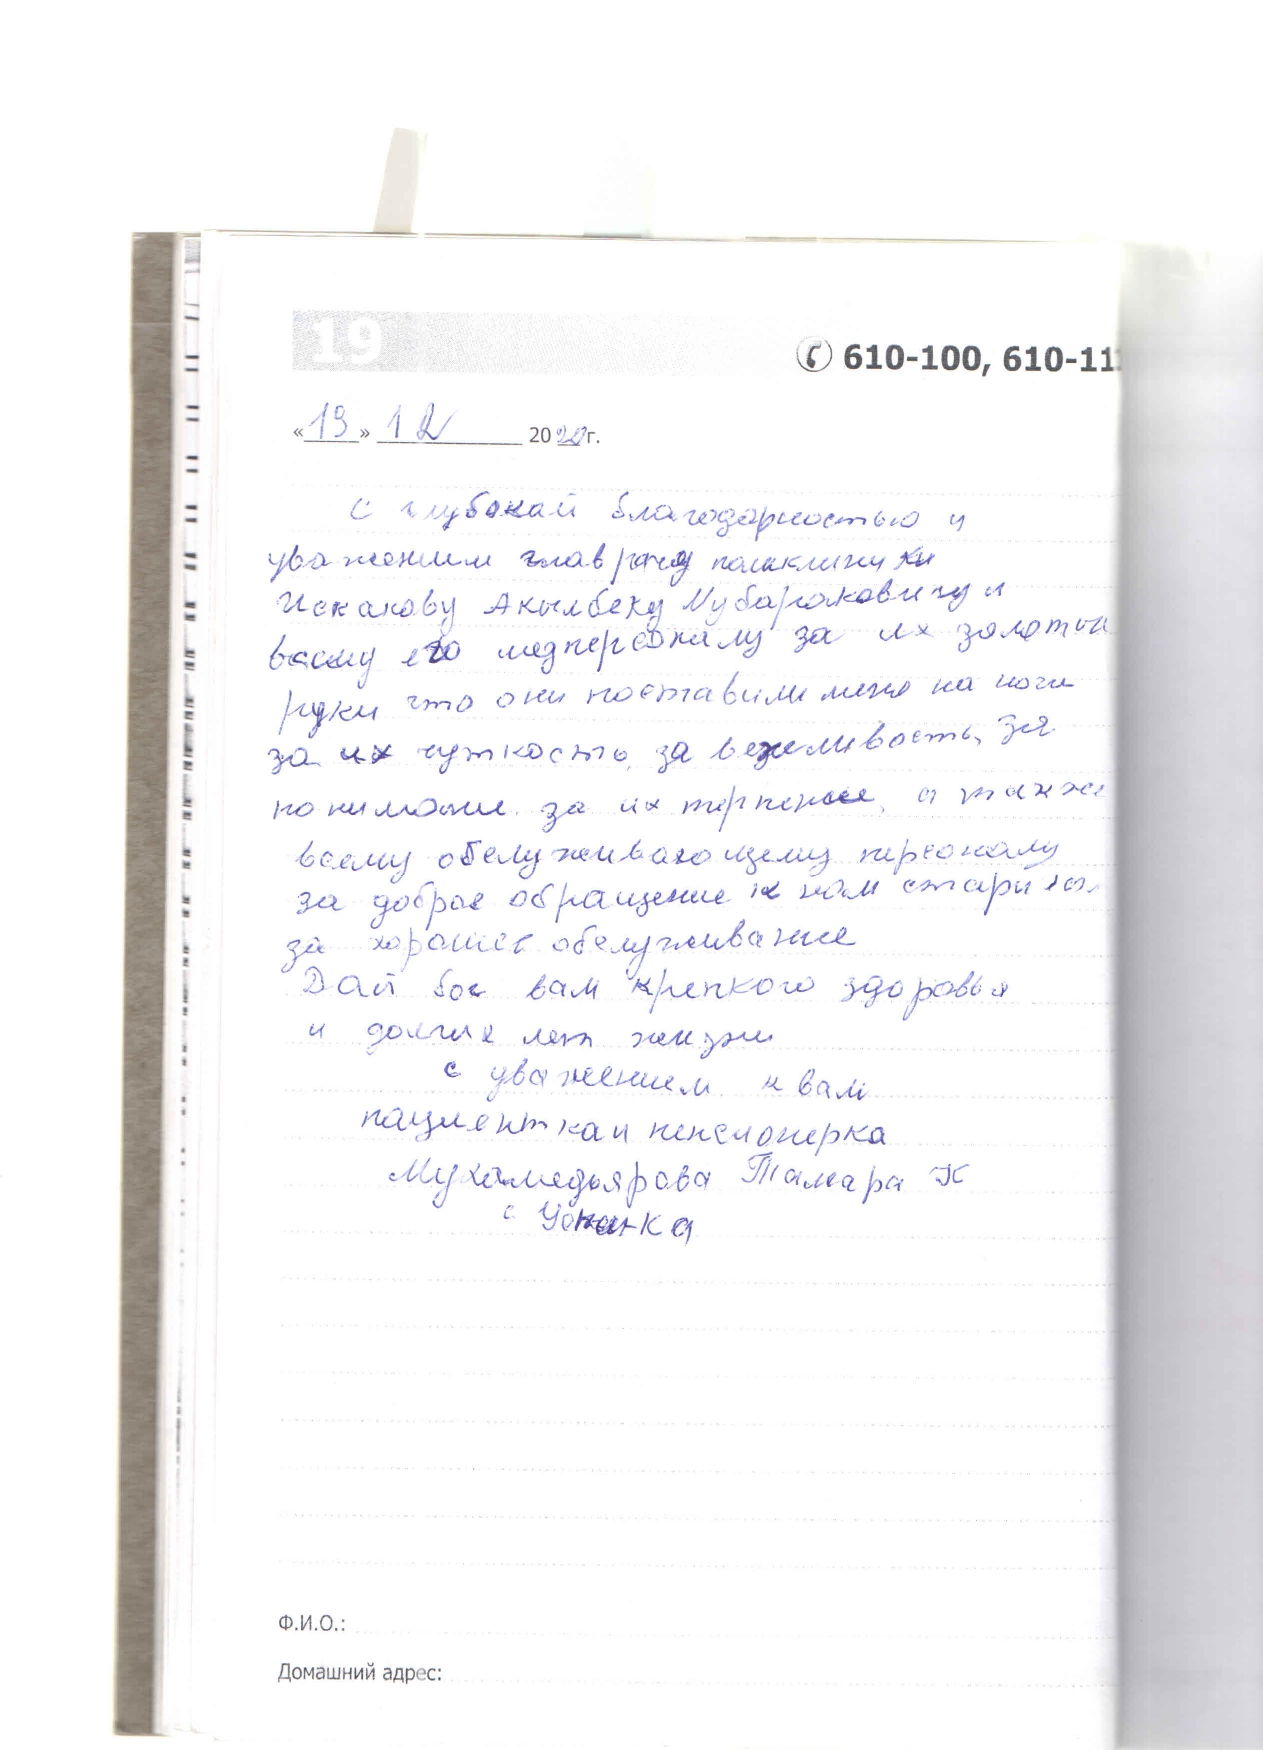 19
610-100, 610-11
«13» 12 2020г.
С глубокай благодарностью и
уважением главрачу поликлинуки
Искакову Акылбеку Мубараковичу и
всему его медперсоналу за их золотыи
руки что они поставили меня на ноги
за их чуткость, за вежеливость, за
понимание. за их терпение, а также
всему обслуживающему персоналу
за доброе обращение к нам
за хорошее обслуживание
Дай бог вам крепкого здоровья
и долгих лет жизни
с уважением к вам
пациентка и пенсионерка
Мухамедьярова Тамара К
с
Ф.И.О.:
Домашний адрес: